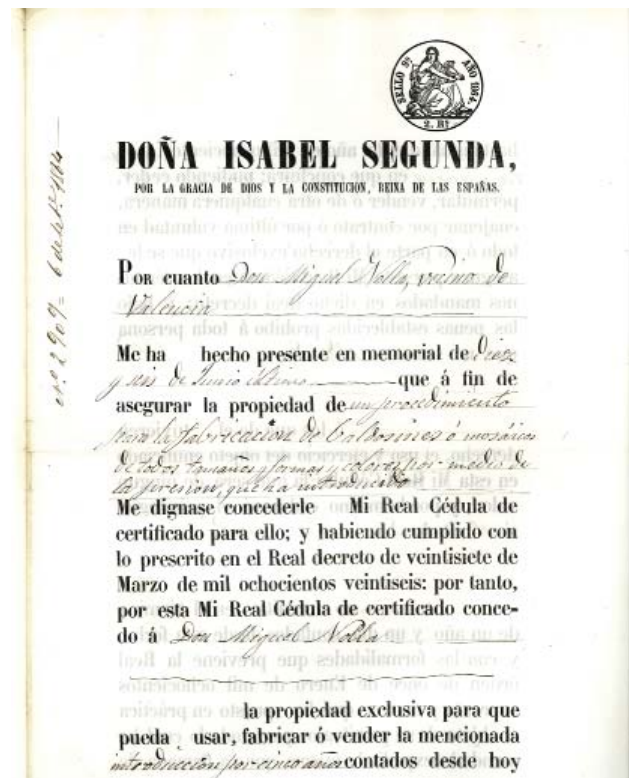 SELLO 9º AÑO 1864.
2. Rs
DOÑA ISABEL SEGUNDA,
POR LA GRACIA DE DIOS Y LA CONSTITUCION, REINA DE LAS ESPAÑAS.
nº 2907=
POR cuanto Don Miguel Nolla, vecino de
Valencia
Me ha hecho presente en memorial de Diez
y seis de Junio último que á fin de
asegurar la propiedad de un procedimiento
para la fabricación de baldosines ó mosáicos
de todos tamaños, formas y colores por medio de
la presion, que ha introducido
Me dignase concederle Mi Real Cédula de
certificado para ello; y habiendo cumplido con
lo prescrito en el Real decreto de veintisiete de
Marzo de mil ochocientos veintiseis: por tanto,
por esta Mi Real Cédula de certificado conce-
do á Don Miguel Nolla
la propiedad exclusiva para que
pueda usar, fabricar ó vender la mencionada
introduccion por cinco años contados desde hoy